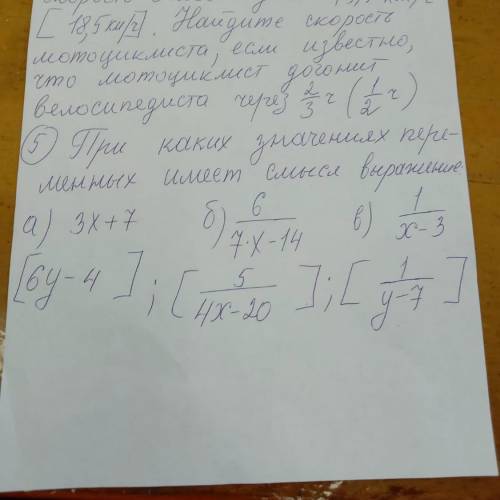 [18,5 км/ч]. Найдите скорость
мотоциклиста, если известно,
что мотоциклист догонит
велосипедиста через 2/3 ч (1/2 ч)
5 При каких значениях пере-
менных имеет смысл выражение
а) 3x+7 б) 6/(7·x-14) в) 1/(x-3)
[6y-4]; [5/(4x-20)]; [1/(y-7)]